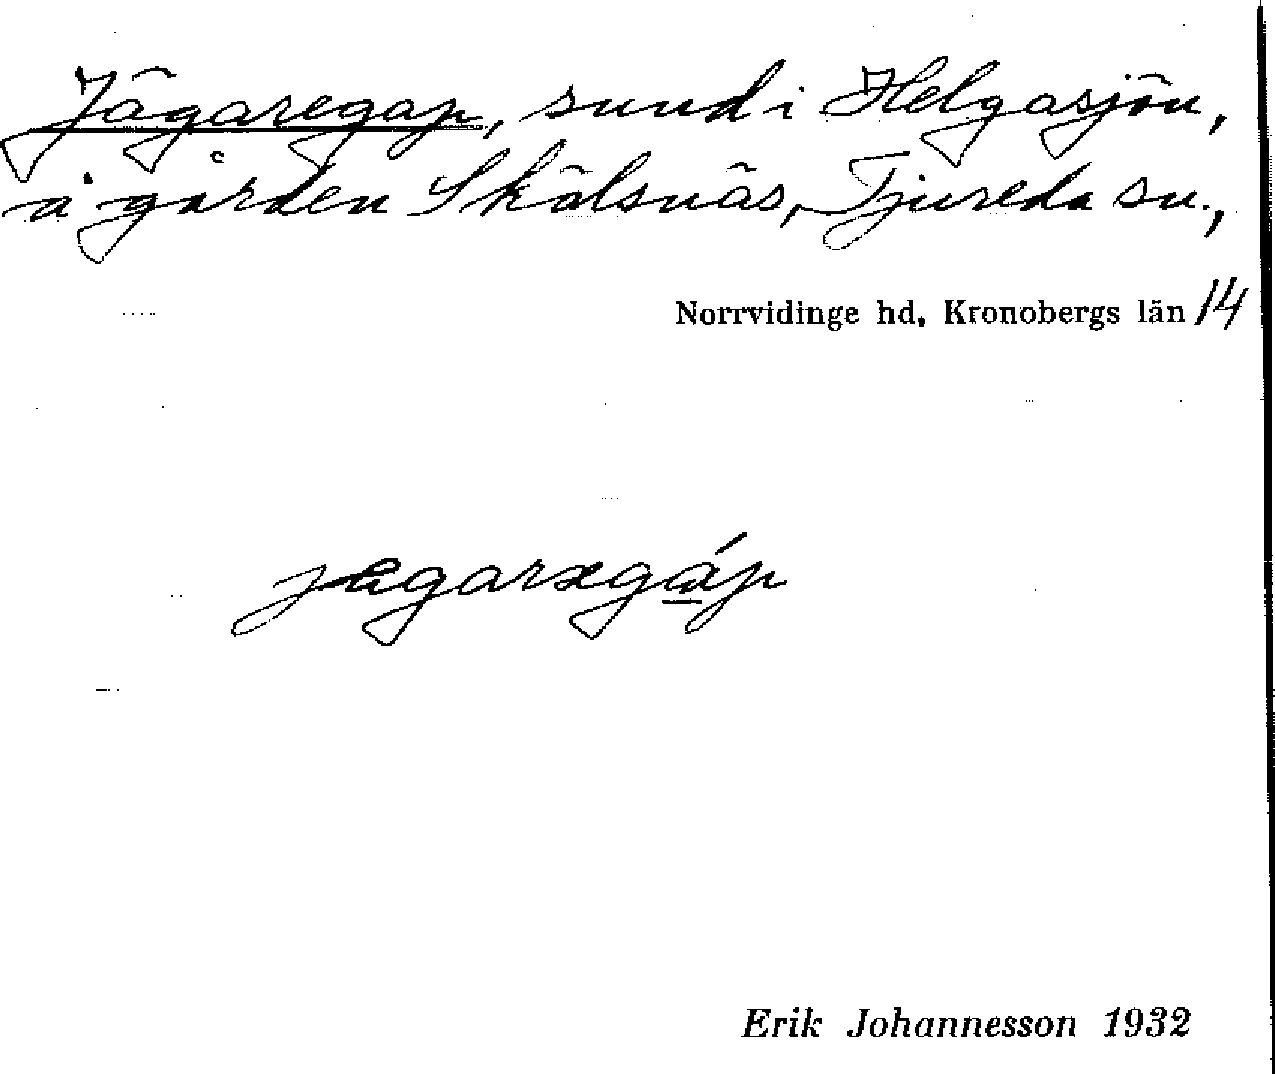 Jägaregap, sund i Helgasjön,
å gården Skälsnäs, Tjureda sn.,
Norrvidinge hd, Kronobergs län 14
jægarægáp
Erik Johannesson 1932